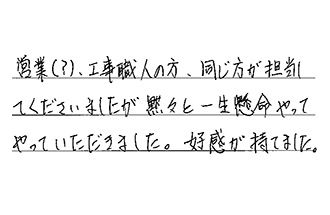 営業(?)、工事職人の方、同じ方が担当し
てくださいましたが黙々と一生懸命やって
やっていただきました。好感が持てました。